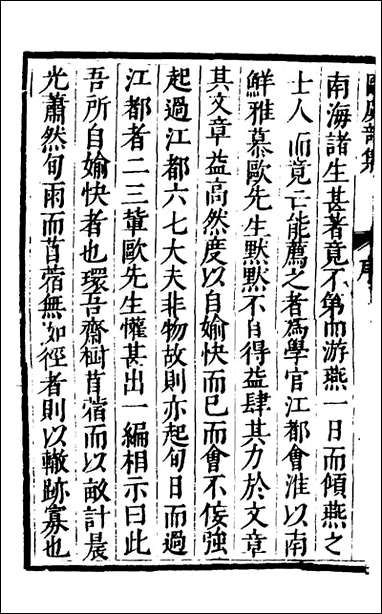 南海諸生甚著竟不第而游燕一日而傾燕之
士人而竟亡能薦之者為學官江都會淮以南
鮮雅慕歐先生默默不自得益肆其力於文章
其文章益高然度以自媮快而已而會不佞強
起過江都六七大夫非物故則亦起旬日而過
江都者二三輩歐先生懽甚出一編相示曰此
吾所自媮快者也環吾齋樹苜蓿而以畝計晨
光蕭然旬雨而苜蓿無如徑者則以轍跡寡也